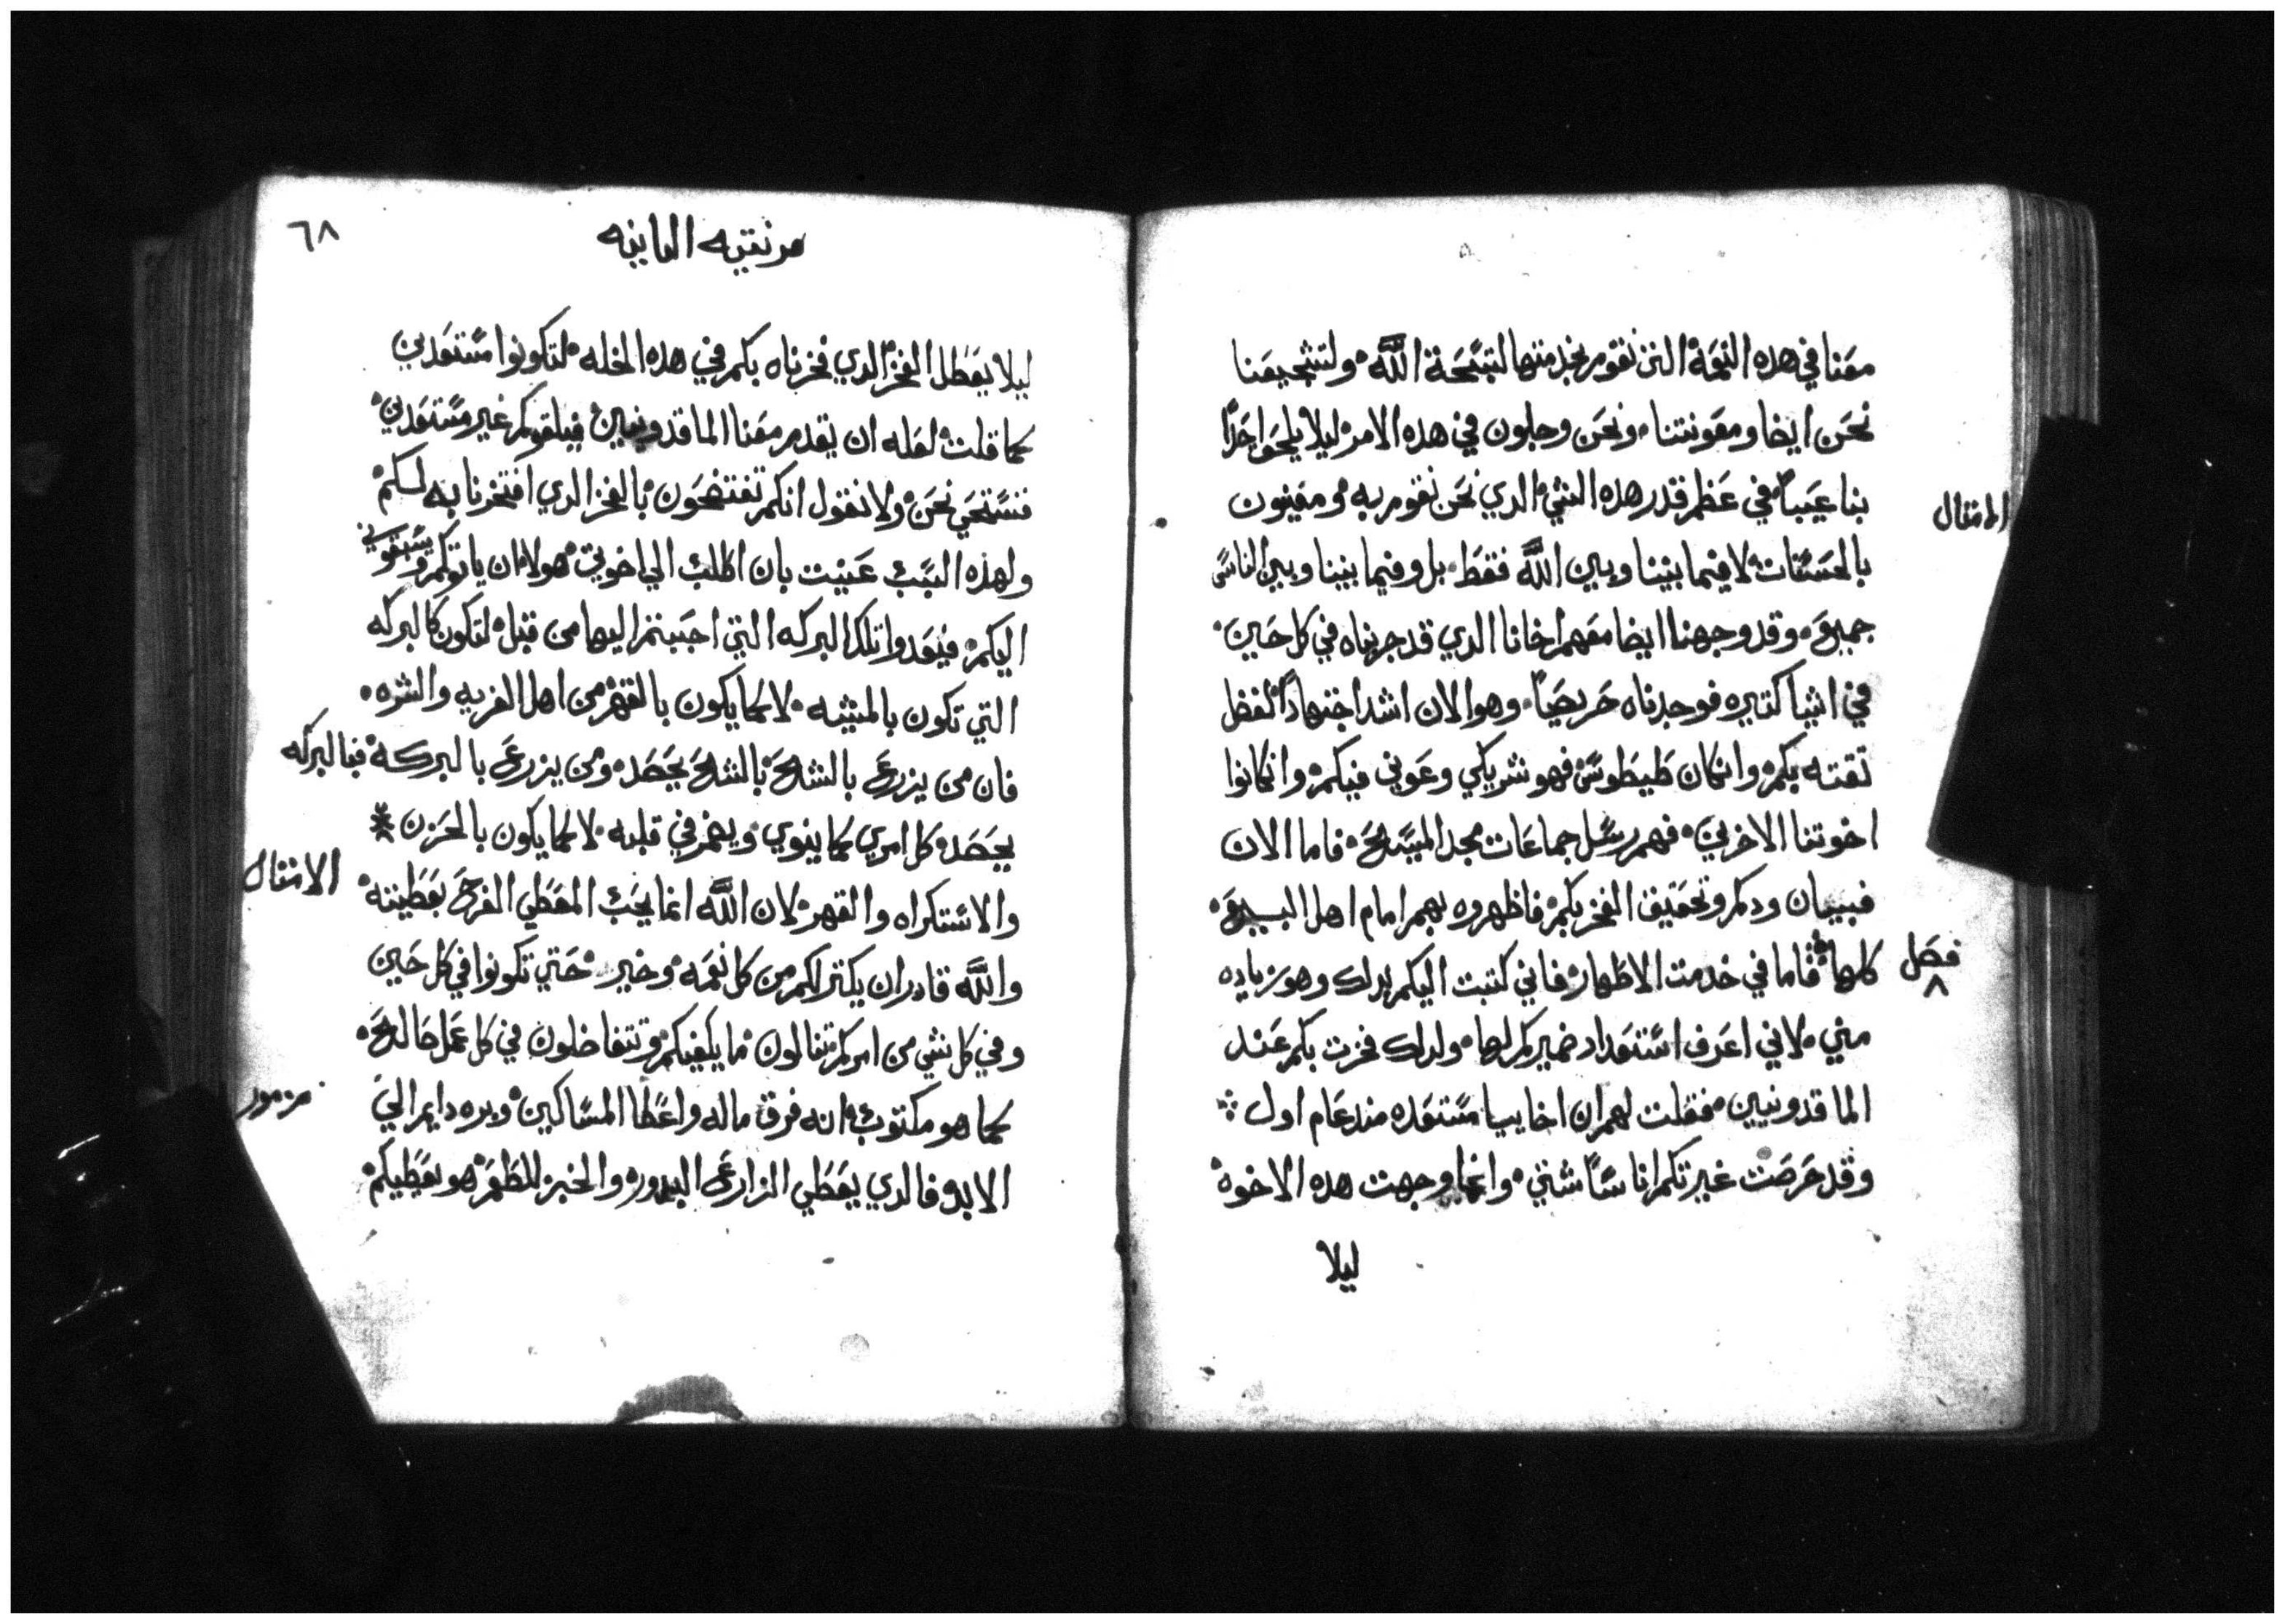 معنا في هذه النعمة التي نقوم بخدمتها لتسبحة الله ولتشجيعنا
نحن ايضا ومعونتنا ونحن وجلون في هده الامر ليلا يلحوا احدا
بنا عيبا في عظم قدر هده الشي الدي نحن نقوم به ومعنيون
الامتال
بالحسنات لا فيما بيننا وبين الله فقط بل وفيما بيننا وبين الناس
جميع وقد وجهنا ايضا معهم اخانا الدي قد جربناه في كل حين
في اشيا كتيره فوجدناه حريصا وهو الان اشد اجتهادا لفضل
تقته بكم وان كان طيطوس فهو شريكي وعوني فيكم وان كانوا
اخوتنا الاخرين فهم رسل جماعات مجد المسيح فاما الان
فبيان ودكم وتحقيق الفخر بكم فاظهروه بهم امام اهل البيع
كلها فاما في خدمت الاطهار فاني كتبت اليكم بدلك وهو زياده
فصل
٨
مني لاني اعرف استعداد ضميركم لها ولدلك فخرت بكم عند
الماقدونيين فقلت لهم ان اخاييا مستعده مند عام اول
وقد حرصت غيرتكم اناسا شتي وانما وجهت هده الاخوه
ليلا
٦٨
قرنتيه التانيه
ليلا يعطل الفخر الدي فخرناه بكم في هده الخله لتكونوا مستعدين
كما قلت لعله ان يقدم معنا الماقدونيين فيلقوكم غير مستعدين
فنستحي نحن ولا نقول انكم تفتضحون بالفخر الدي افتخرنا به لكم
ولهده السبب عنيت بان اطلب الي اخوتي هولا ان ياتوكم ويسبقوني
اليكم فيعدوا تلك البركه التي اجبتم اليها من قبل لتكون كالبركه
التي تكون بالمشيه لا كما يكون بالقهر من اهل الغربه والشره
فان من يزرع بالشح بالشح يحصد ومن يزرع بالبركة فبالبركه
يحصد كل امري كما ينوي ويضمر في قلبه لا كما يكون بالحزن
والاستكراه والقهر لان الله انما يحب المعطي الفرح بعطيته
الامتال
والله قادر ان يكتر لكم من كل نعمه وخير حتي تكونوا في كل حين
وفي كل شي من امركم تنالون ما يكفيكم وتتفاضلون في كل عمل صالح
كما هو مكتوب انه فرق ماله واعطا المساكين وبره دايم الي
مزمور
الابد فالدي يعطي الزارع البدور والخبز للطعم هو يعطيكم